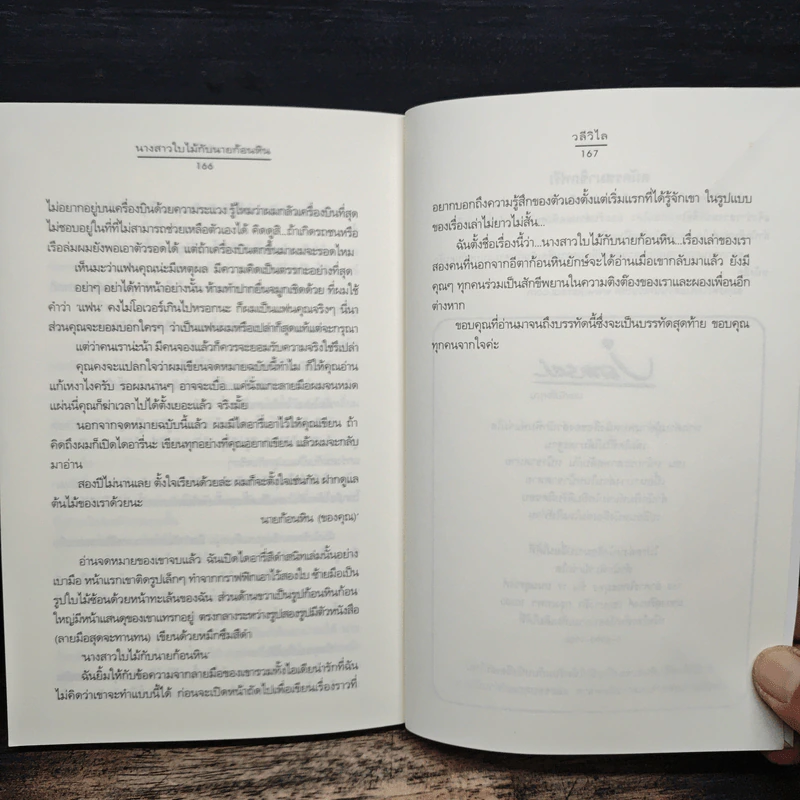 นางสาวใบไม้กับนายก้อนหิน
166
ไม่อยากอยู่บนเครื่องบินด้วยความระแวง รู้ไหมว่าผมกลัวเครื่องบินที่สุด
ไม่ชอบอยู่ในที่ที่ไม่สามารถช่วยเหลือตัวเองได้ คิดดูสิ..ถ้าเกิดรถชนหรือ
เรือล่มผมยังพอเอาตัวรอดได้ แต่ถ้าเครื่องบินตกขึ้นมาผมจะรอดไหม
เห็นมะว่าแฟนคุณน่ะมีเหตุผล มีความคิดเป็นตรรกะอย่างที่สุด
อย่าๆ อย่าได้ทำหน้าอย่างนั้น ห้ามทำปากยื่นจมูกเชิดด้วย ที่ผมใช้
คำว่า 'แฟน' คงไม่โอเวอร์เกินไปหรอกนะ ก็ผมเป็นแฟนคุณจริงๆ นี่นา
ส่วนคุณจะยอมบอกใครๆ ว่าเป็นแฟนผมหรือเปล่าก็สุดแท้แต่จะกรุณา
แต่ว่าคนเราน่ะน้า มีคนจองแล้วก็ควรจะยอมรับความจริงใช่รึเปล่า
คุณคงจะแปลกใจว่าผมเขียนจดหมายฉบับนี้ทำไม ก็ให้คุณอ่าน
แก้เหงาไงครับ รอผมนานๆ อาจจะเบื่อ...แค่นั่งแกะลายมือผมจนหมด
แผ่นนี่คุณก็ฆ่าเวลาไปได้ตั้งเยอะแล้ว จริงมั้ย
นอกจากจดหมายฉบับนี้แล้ว ผมมีไดอารี่เอาไว้ให้คุณเขียน ถ้า
คิดถึงผมก็เปิดไดอารี่นะ เขียนทุกอย่างที่คุณอยากเขียน แล้วผมจะกลับ
มาอ่าน
สองปีไม่นานเลย ตั้งใจเรียนด้วยล่ะ ผมก็จะตั้งใจเช่นกัน ฝากดูแล
ต้นไม้ของเราด้วยนะ
นายก้อนหิน (ของคุณ)'
อ่านจดหมายของเขาจบแล้ว ฉันเปิดไดอารี่สีดำสนิทเล่มนั้นอย่าง
เบามือ หน้าแรกเขาติดรูปเล็กๆ ทำจากกราฟฟิกเอาไว้สองใบ ซ้ายมือเป็น
รูปใบไม้ซ้อนด้วยหน้าทะเล้นของฉัน ส่วนด้านขวาเป็นรูปก้อนหินก้อน
ใหญ่มีหน้าแสนดุของเขาแทรกอยู่ ตรงกลางระหว่างรูปสองรูปมีตัวหนังสือ
(ลายมือสุดจะทานทน) เขียนด้วยหมึกซึมสีดำ
'นางสาวใบไม้กับนายก้อนหิน'
ฉันยิ้มให้กับข้อความจากลายมือของเขารวมทั้งไอเดียน่ารักที่ฉัน
ไม่คิดว่าเขาจะทำแบบนี้ได้ ก่อนจะเปิดหน้าถัดไปเพื่อเขียนเรื่องราวที่
วลีวิไล
167
อยากบอกถึงความรู้สึกของตัวเองตั้งแต่เริ่มแรกที่ได้รู้จักเขา ในรูปแบบ
ของเรื่องเล่าไม่ยาวไม่สั้น...
ฉันตั้งชื่อเรื่องนี้ว่า...นางสาวใบไม้กับนายก้อนหิน...เรื่องเล่าของเรา
สองคนที่นอกจากอีตาก้อนหินยักษ์จะได้อ่านเมื่อเขากลับมาแล้ว ยังมี
คุณๆ ทุกคนร่วมเป็นสักขีพยานในความติงต๊องของเราและผองเพื่อนอีก
ต่างหาก
ขอบคุณที่อ่านมาจนถึงบรรทัดนี้ซึ่งจะเป็นบรรทัดสุดท้าย ขอบคุณ
ทุกคนจากใจค่ะ